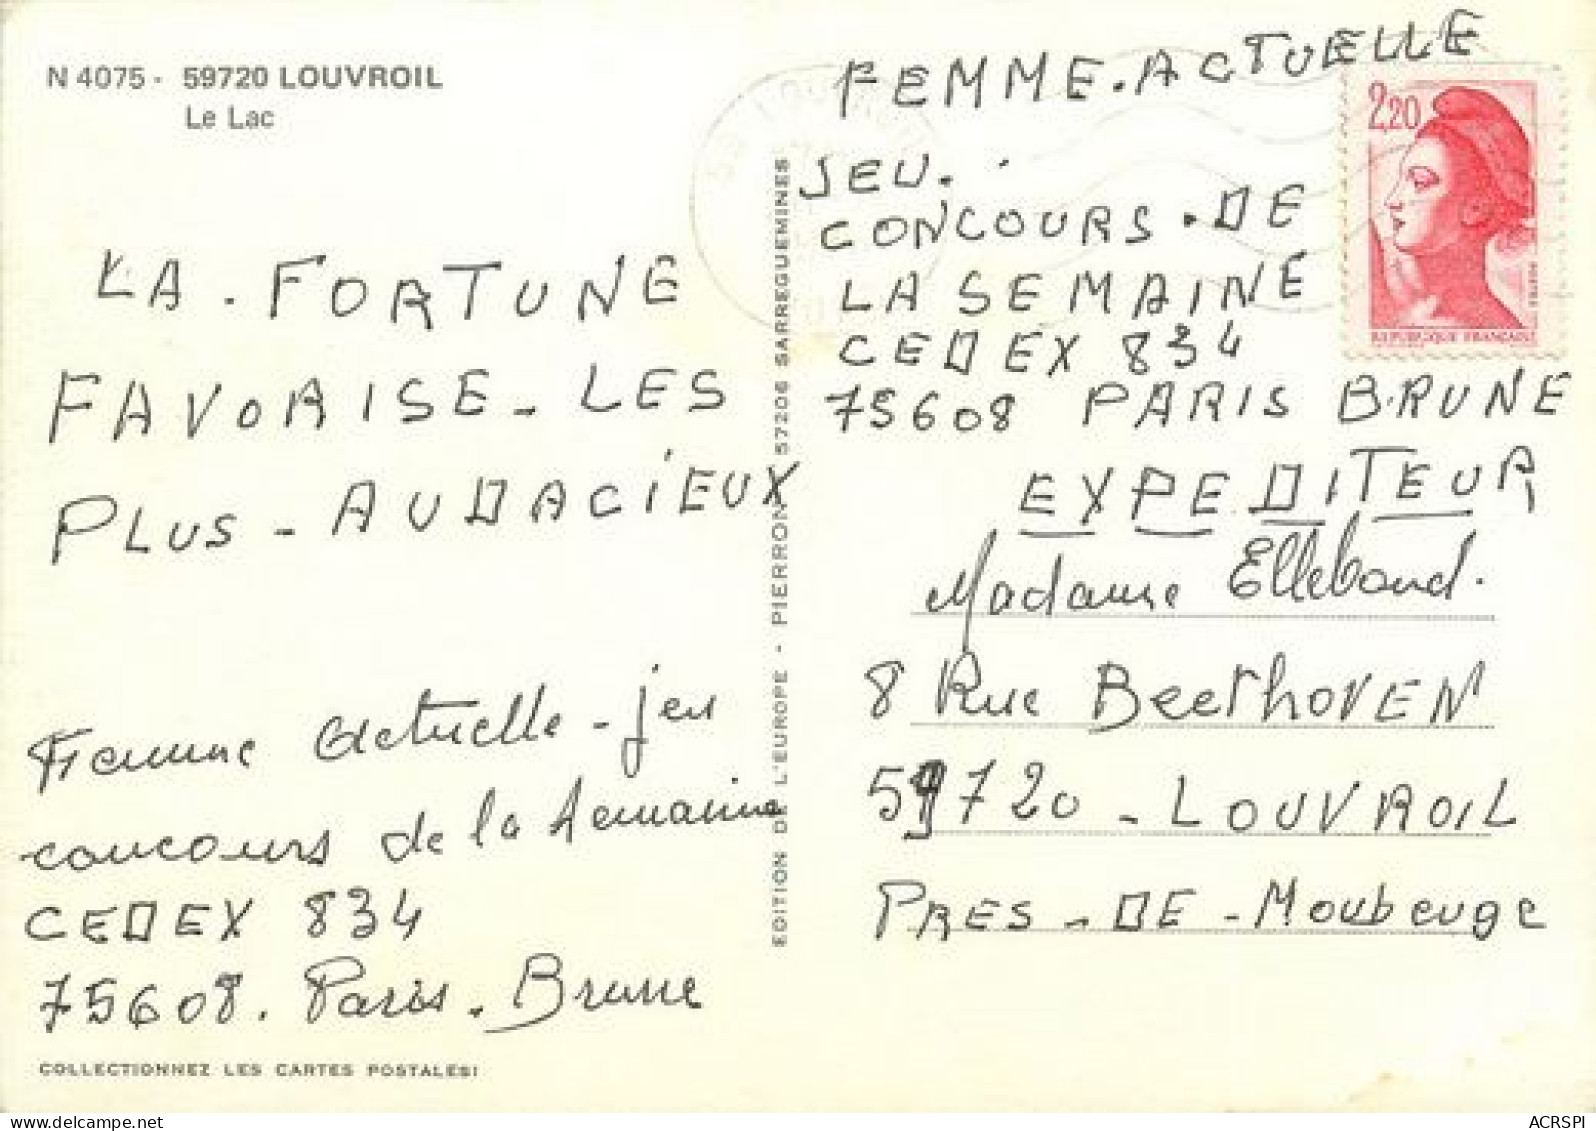 N 4075 - 59720 LOUVROIL
Le Lac
LA. FORTUNE
FAVORISE - LES
PLUS - AUDACIEUX
Femme actuelle - jeu
concours de la semaine
CEDEX 834
75608. Paris - Brune
COLLECTIONNEZ LES CARTES POSTALES!
EDITION DE L'EUROPE - PIERRON 57206 SARREGUEMINES
FEMME. ACTUELLE
JEU.
CONCOURS. DE
LA SEMAINE
CEDEX 834
75608 PARIS BRUNE
EXPEDITEUR
Madame Elleboud.
8 Rue BEETHOVEN
59720 - LOUVROIL
PRES - DE - Moubeuge
2,20
POSTES
REPUBLIQUE FRANÇAISE
www.delcampe.net
ACRSPI